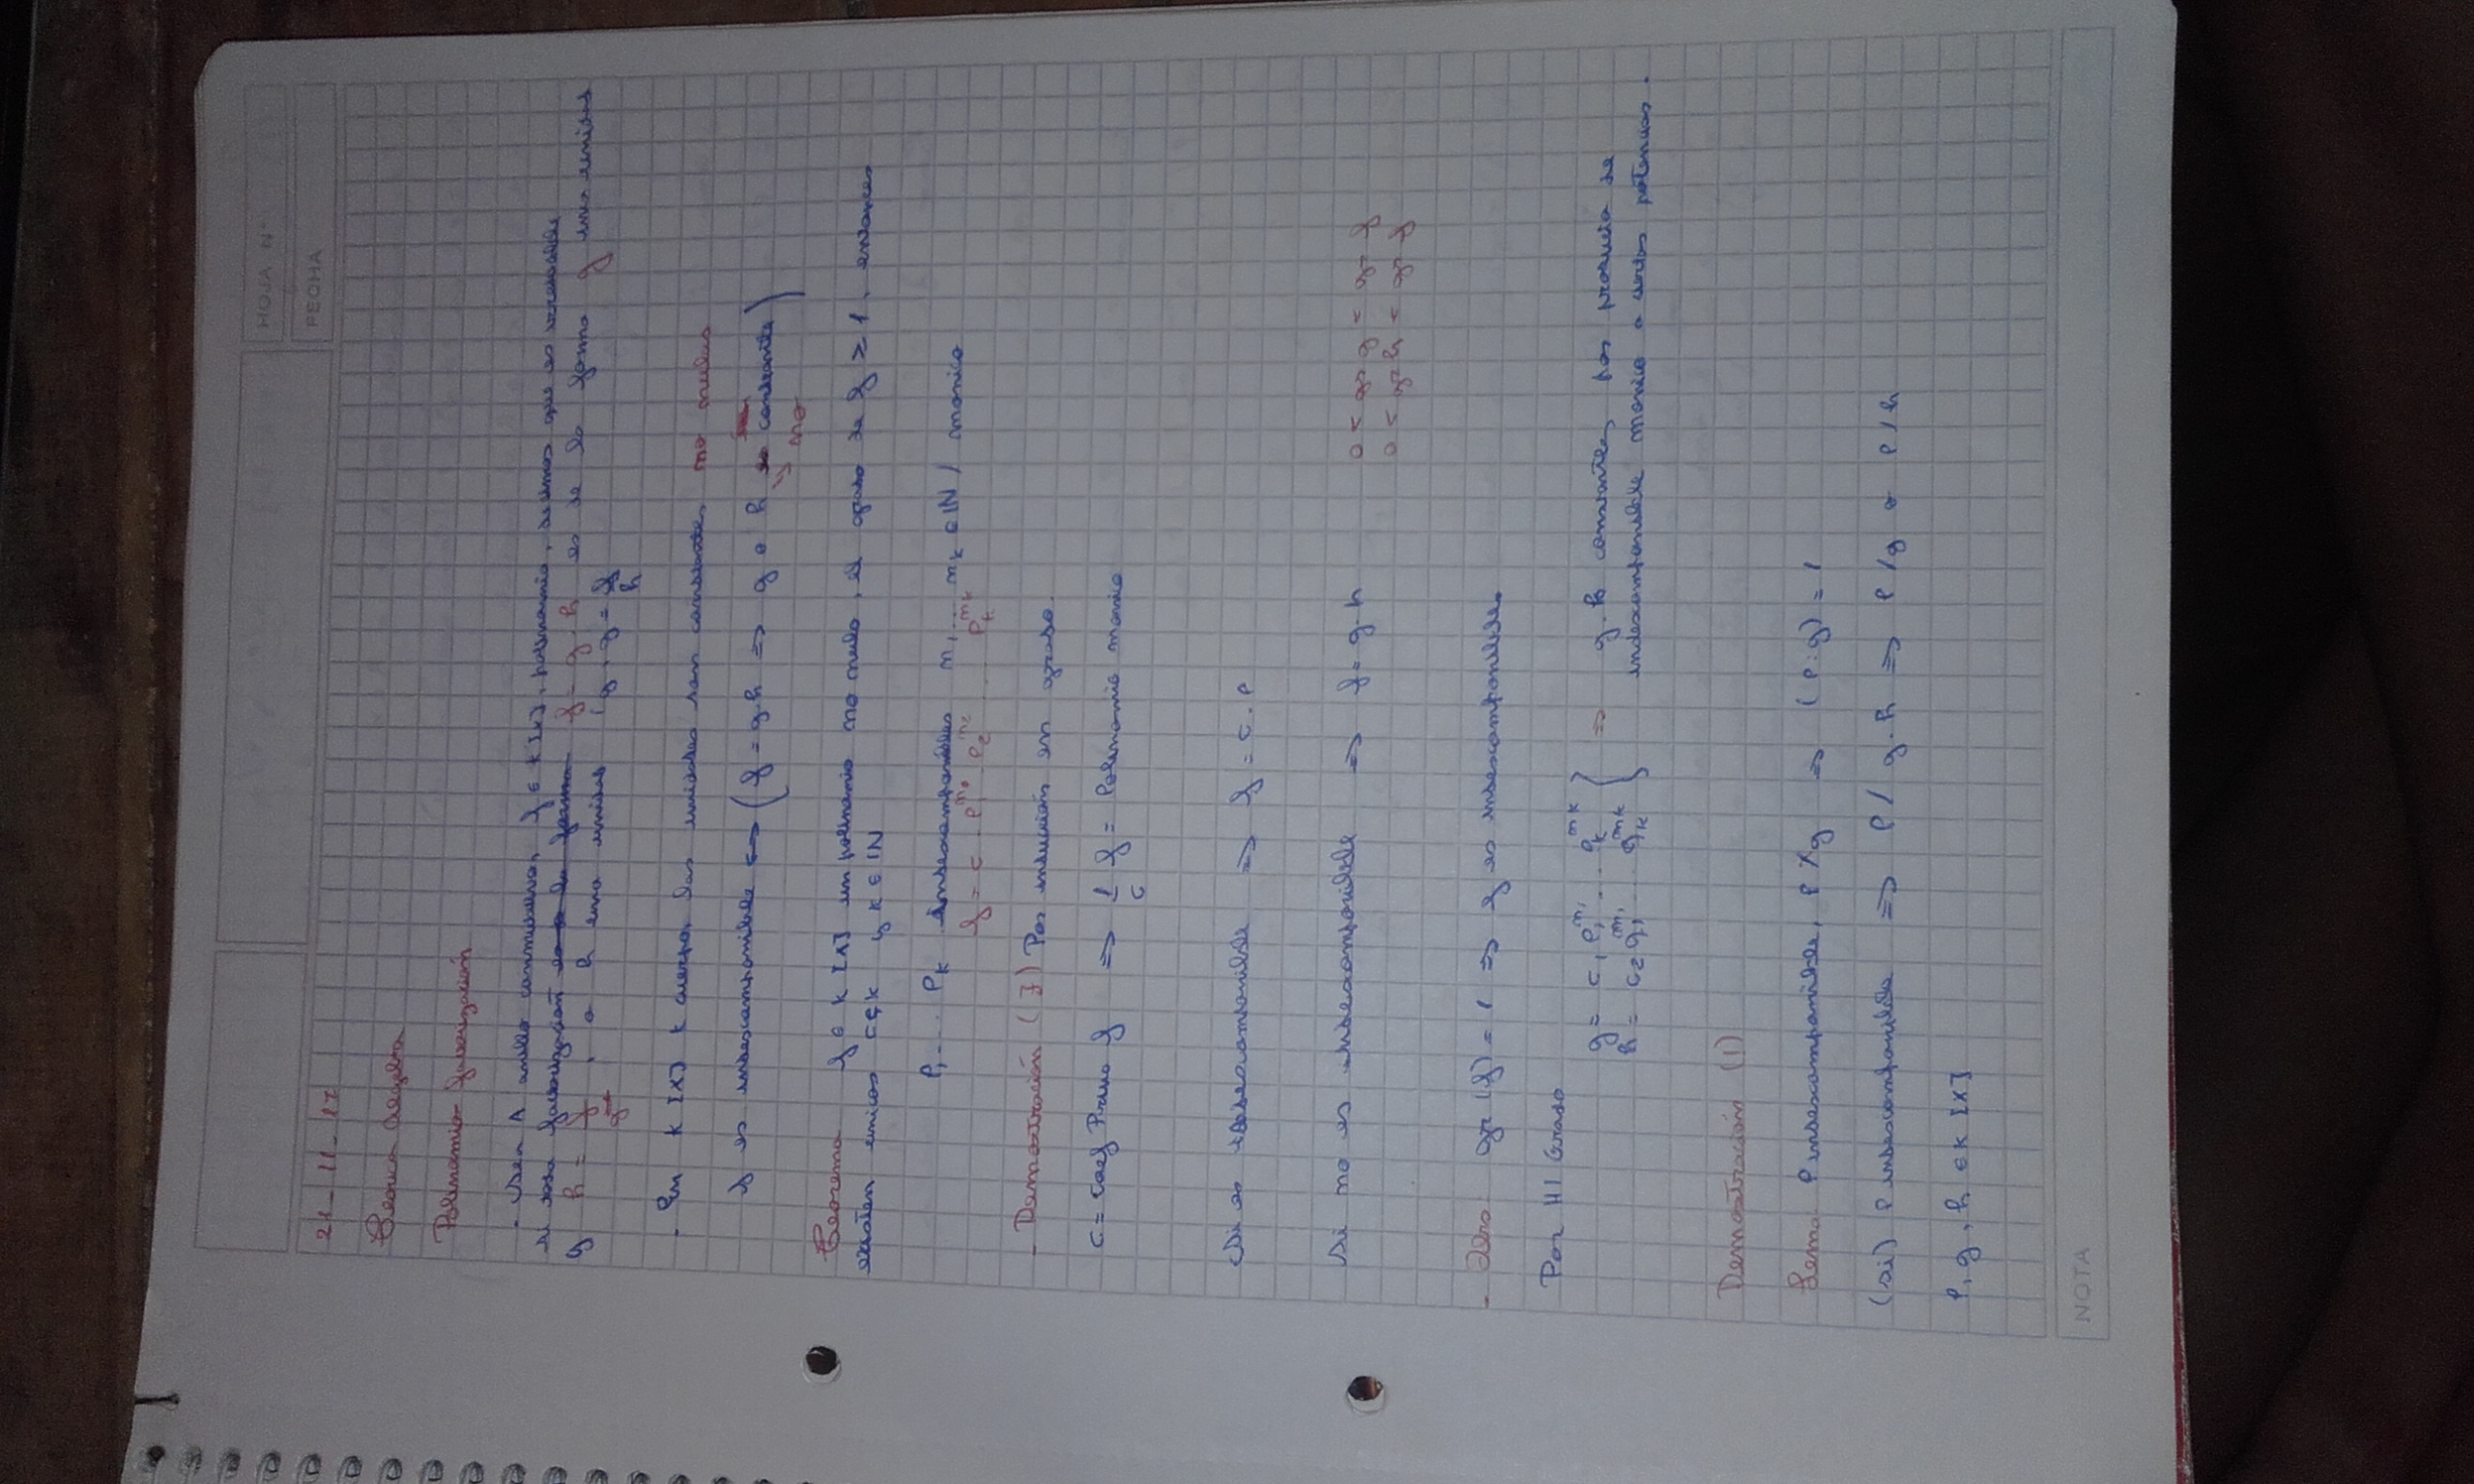 HOJA N°
FECHA
21-11-17
Teorica Algebra
Polinomio factorización
- Sea A anillo conmutativo, f ∈ K[x], polinomio, decimos que es irreducible
si toda factorización f = g . h es de la forma g una unidad
y h = f/g, o h una unidad y g = f/h
- En K[x] K cuerpo, las unidades son constantes no nulas
f es indescomponible ⟺ (f = g.h ⟹ g o h constante)
no
Teorema f ∈ K[x] un polinomio no nulo, el grado de f ≥ 1, entonces
existen unicos c ∈ K y k ∈ IN
P1 ... Pk indescomponibles n1 ... nk ∈ IN / monico
f = c . P1^n1 . P2^n2 ... Pk^nk
- Demostración (∃) Por inducción en grado.
c = coef f ⟹ 1/c f = Polinomio monico
Si es indescomponible ⟹ f = c . P
Si no es indescomponible ⟹ f = g.h 0 < gr g < gr f
0 < gr h < gr f
gr (f) = 1 ⟹ f es indescomponible.
Por HI Grado
g = c1 P1^n1 ... Pk^nk
h = c2 q1^m1 ... qk^mk } ⟹ g.h constante, por producto de
indescomponible monico a ciertas potencias.
Demostración (!)
Lema P indescomponible, P ∤ g ⟹ (P:g) = 1
(si) P indescomponible ⟹ P / g.h ⟹ P / g o P / h
P, g, h ∈ K [X]
NOTA